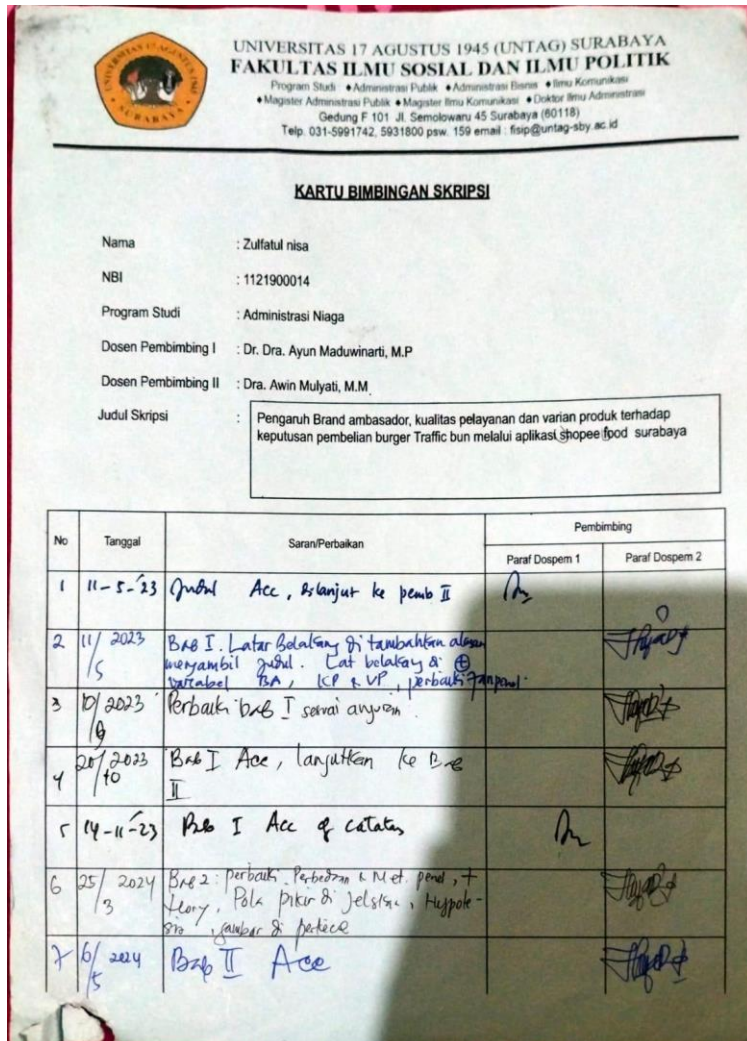 UNIVERSITAS 17 AGUSTUS 1945 (UNTAG) SURABAYA
FAKULTAS ILMU SOSIAL DAN ILMU POLITIK
Program Studi ♦Administrasi Publik ♦Administrasi Bisnis ♦Ilmu Komunikasi
♦Magister Administrasi Publik ♦Magister Ilmu Komunikasi ♦Doktor Ilmu Administrasi
Gedung F 101 Jl. Semolowaru 45 Surabaya (60118)
Telp. 031-5991742, 5931800 psw. 159 email : fisip@untag-sby.ac.id
KARTU BIMBINGAN SKRIPSI
Nama : Zulfatul nisa
NBI : 1121900014
Program Studi : Administrasi Niaga
Dosen Pembimbing I : Dr. Dra. Ayun Maduwinarti, M.P
Dosen Pembimbing II : Dra. Awin Mulyati, M.M
Judul Skripsi : Pengaruh Brand ambasador, kualitas pelayanan dan varian produk terhadap
keputusan pembelian burger Traffic bun melalui aplikasi shopee food surabaya
No Tanggal Saran/Perbaikan Pembimbing
Paraf Dospem 1 Paraf Dospem 2
1 11-5-'23 Judul Acc, lanjut ke pemb II
2 11/5 2023 Bab I. Latar Belakang di tambahkan alasan
mengambil judul. Lat belakang di +
variabel BA, KP & VP, perbaiki
3 10/ 2023 Perbaiki bab I sesuai anjuran
4 20/10 2023 Bab I Acc, lanjutkan ke Bab
II
5 14-11-23 Bab I Acc catatan
6 25/3 2024 Bab 2: perbaiki Perbedaan & Met. penel, +
teory, Pola pikir di jelaskan, Hypote-
sis, gambar di
7 6/5 2024 Bab II Acc